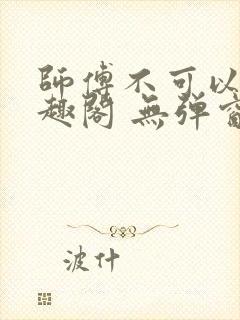 師傅不可以
趣閣 無弹
波什